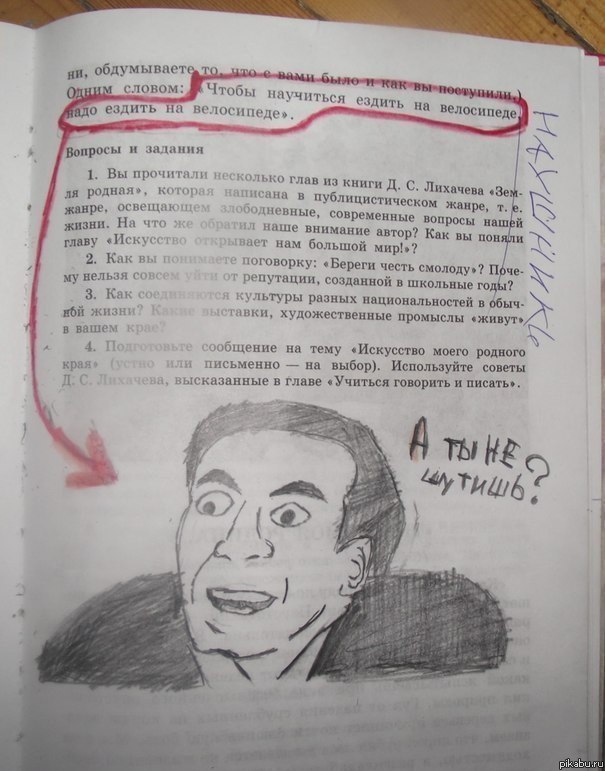 ни, обдумываете то, что с вами было и как вы поступили.)
Одним словом: «Чтобы научиться ездить на велосипеде,
надо ездить на велосипеде».
Вопросы и задания
1. Вы прочитали несколько глав из книги Д. С. Лихачева «Зем-
ля родная», которая написана в публицистическом жанре, т. е.
жанре, освещающем злободневные, современные вопросы нашей
жизни. На что же обратил наше внимание автор? Как вы поняли
главу «Искусство открывает нам большой мир!»?
2. Как вы понимаете поговорку: «Береги честь смолоду»? Поче-
му нельзя совсем уйти от репутации, созданной в школьные годы?
3. Как соединяются культуры разных национальностей в обыч-
ной жизни? Какие выставки, художественные промыслы «живут»
в вашем крае?
4. Подготовьте сообщение на тему «Искусство моего родного
края» (устно или письменно — на выбор). Используйте советы
Д. С. Лихачева, высказанные в главе «Учиться говорить и писать».
НАУШНИКЬ
А ТЫ НЕ
ШУТИШЬ?
pikabu.ru